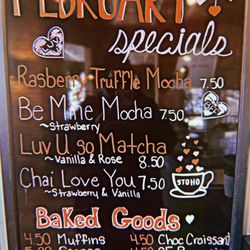 FEBRUARY
specials
Rasberry Truffle Mocha 7.50
Be Mine Mocha 7.50
~Strawberry
Luv U so Matcha
~Vanilla & Rose 8.50
Chai Love You 7.50
~Strawberry & Vanilla
STOKO
Baked Goods
4.50 Muffins 4.50 Choc Croissant